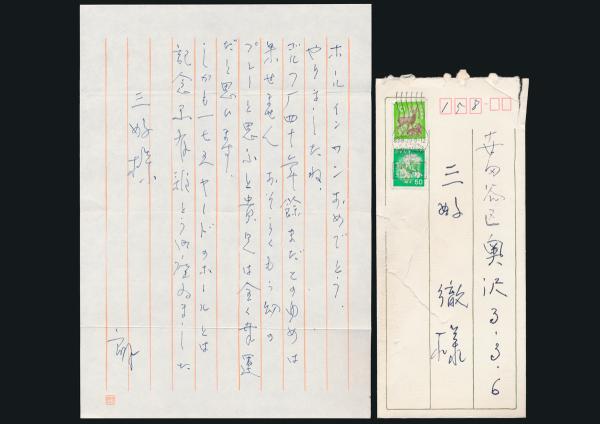 ホールインワンおめでとう.
やりましたね.
ゴルフ 四十年余まだこのゆめは
果せません おそらくもう幻の
プレーと思ふと貴兄は全く幸運
だと思ひます.
しかも一七五ヤードのホールとは
記念品有難とうございました
三好様
158
世田谷区奥沢3.3.6
三好 徹 様